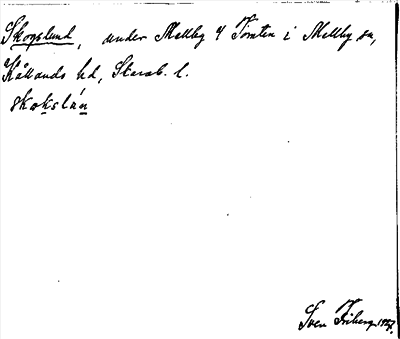 Skogslund, under Mellby 4 Tomten i Mellby sn,
Kållands hd, Skarab. l.
skoksluń
Sven Friberg 1927.